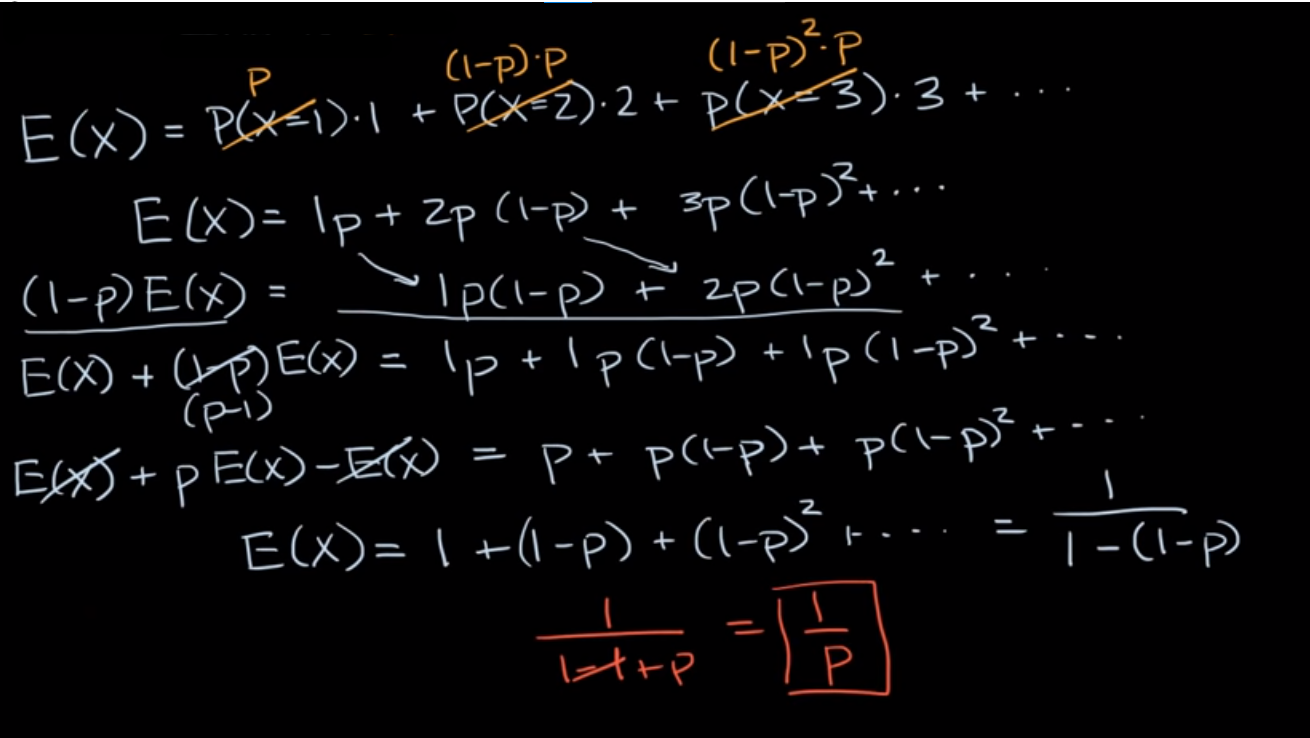 p (1-p)·p (1-p)²·p
E(X) = P(X=1)·1 + P(X=2)·2 + P(X=3)·3 + ···
E(X) = 1p + 2p(1-p) + 3p(1-p)² + ···
(1-p)E(X) = 1p(1-p) + 2p(1-p)² + ···
E(X) + (1-p)E(X) = 1p + 1p(1-p) + 1p(1-p)² + ···
(p-1)
E(X) + pE(X) - E(X) = p + p(1-p) + p(1-p)² + ···
E(X) = 1 + (1-p) + (1-p)² + ··· = 1/1-(1-p)
1/1-1+p = 1/p